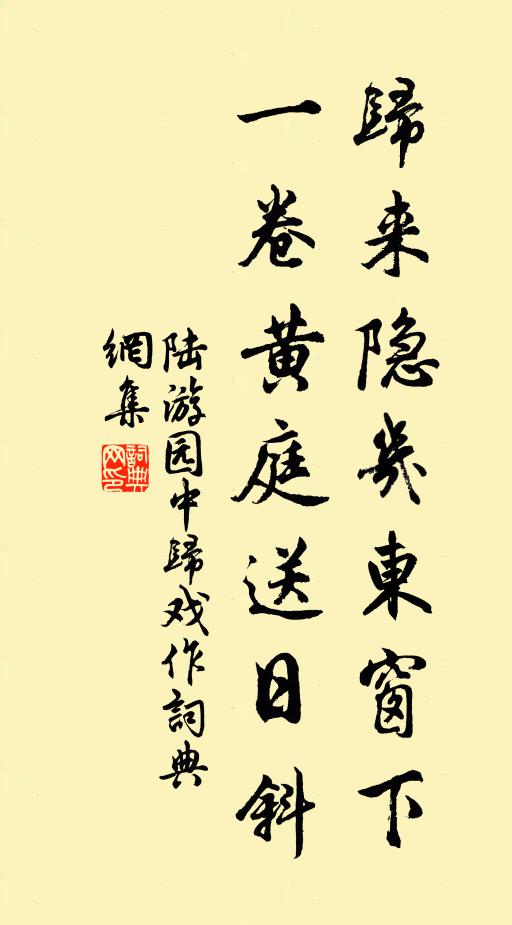 歸来隐幾東窗下
一卷黄庭送日斜
陆游园中歸戏作詞典
網集
詞典
网印